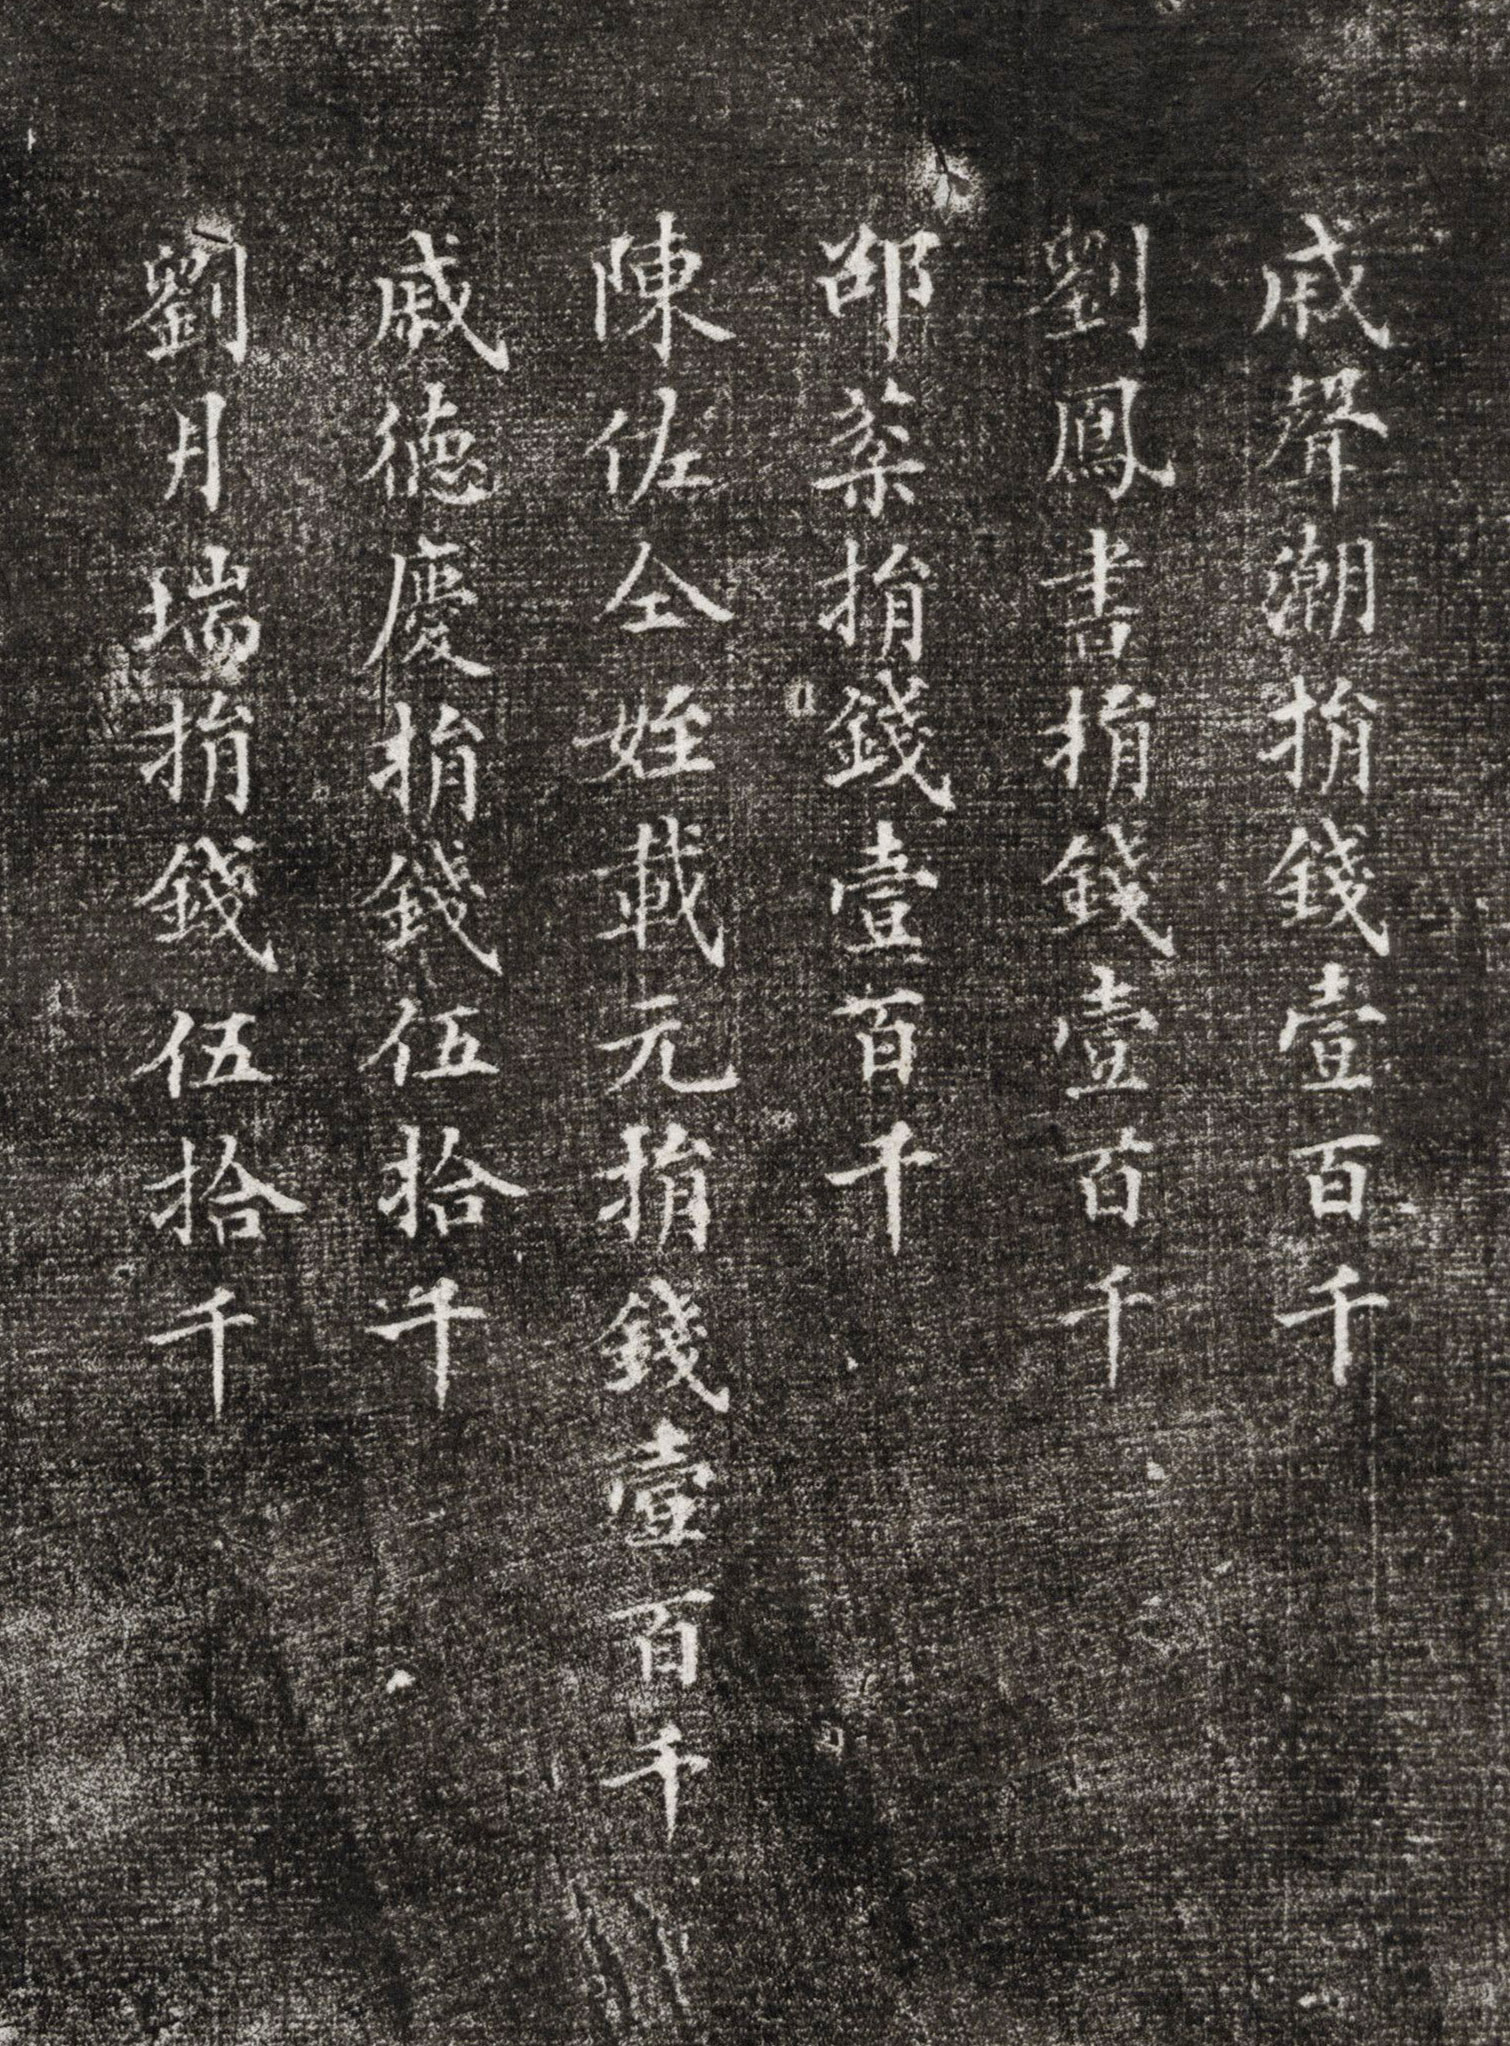 戚聲潮捐錢壹百千
劉鳳書捐錢壹百千
邵棻捐錢壹百千
陳佐仝姪載元捐錢壹百千
戚德慶捐錢伍拾千
劉月瑞捐錢伍拾千